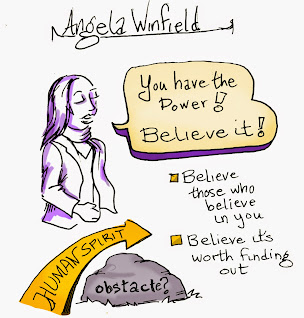 Angela Winfield
You have the
Power!
Believe it!
Believe
those who
believe
in you
Believe it's
worth finding
out
HUMAN SPIRIT
obstacle?